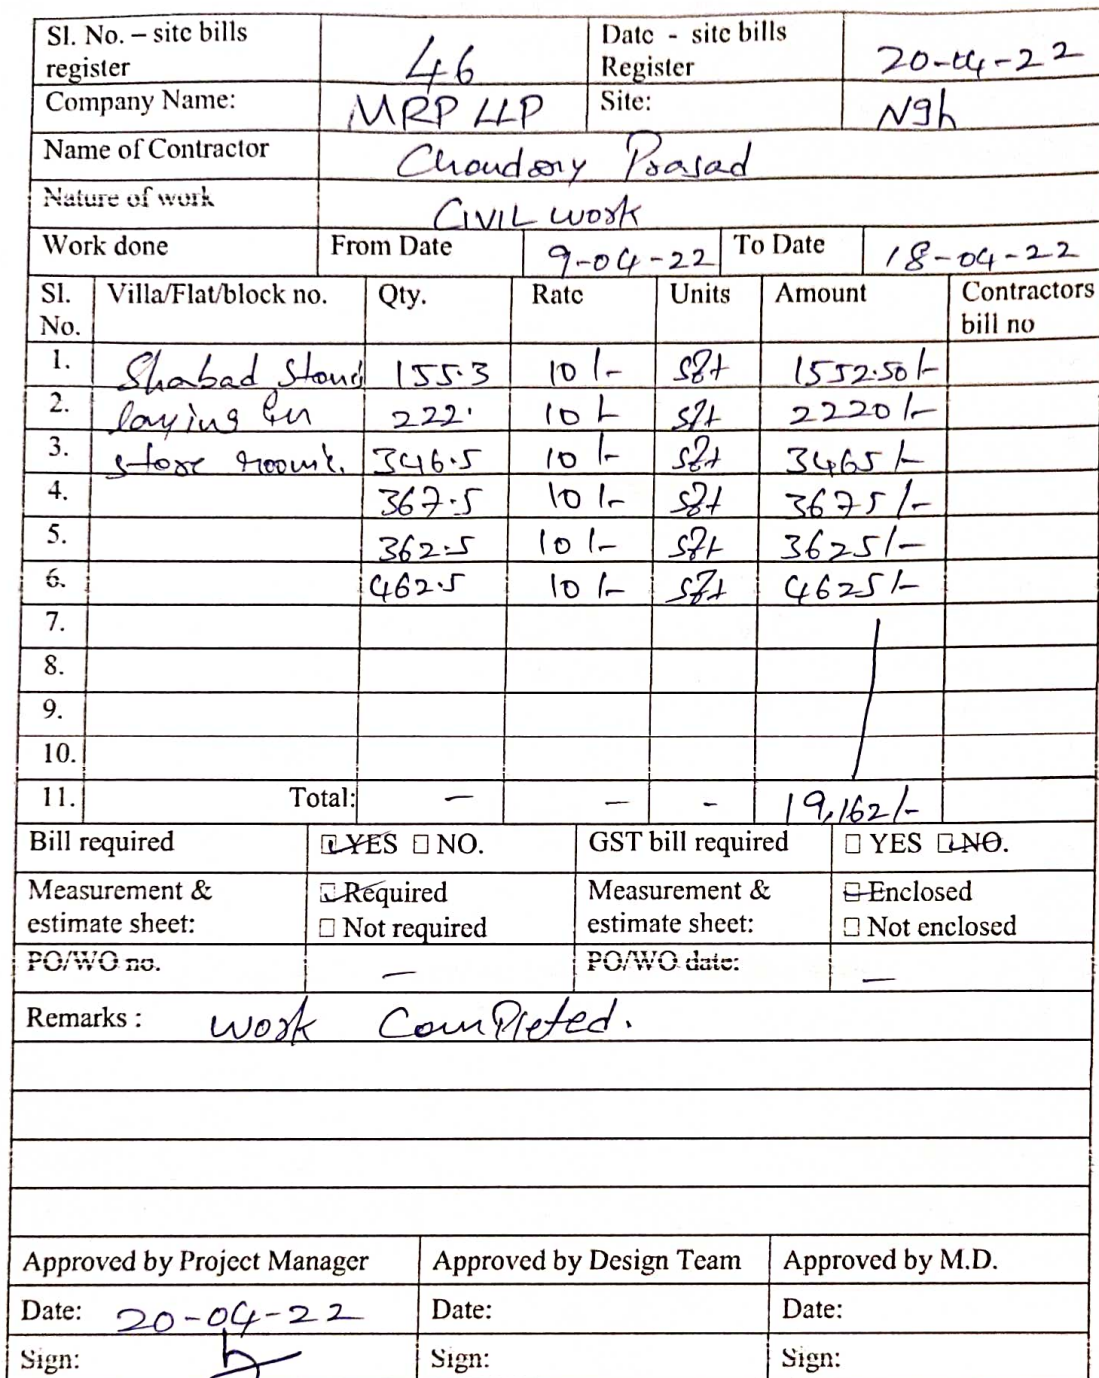 Sl. No. – site bills register 46 Date - site bills Register 20-04-22
Company Name: MRP LLP Site: NGh
Name of Contractor Choudory Prasad
Nature of work CIVIL work
Work done From Date 9-04-22 To Date 18-04-22
Sl. No. Villa/Flat/block no. Qty. Rate Units Amount Contractors bill no
1. Shabad Stone 155.3 10/- sft 1552.50/-
2. laying in 222. 10/- sft 2220/-
3. store room. 346.5 10/- sft 3465/-
4. 367.5 10/- sft 3675/-
5. 362.5 10/- sft 3625/-
6. 462.5 10/- sft 4625/-
7.
8.
9.
10.
11. Total: – – - 19,162/-
Bill required YES NO. GST bill required YES NO.
Measurement & estimate sheet: Required Measurement & estimate sheet: Enclosed
Not required Not enclosed
PO/WO no. – PO/WO date: –
Remarks : work Completed.
Approved by Project Manager Approved by Design Team Approved by M.D.
Date: 20-04-22 Date: Date:
Sign: Sign: Sign: